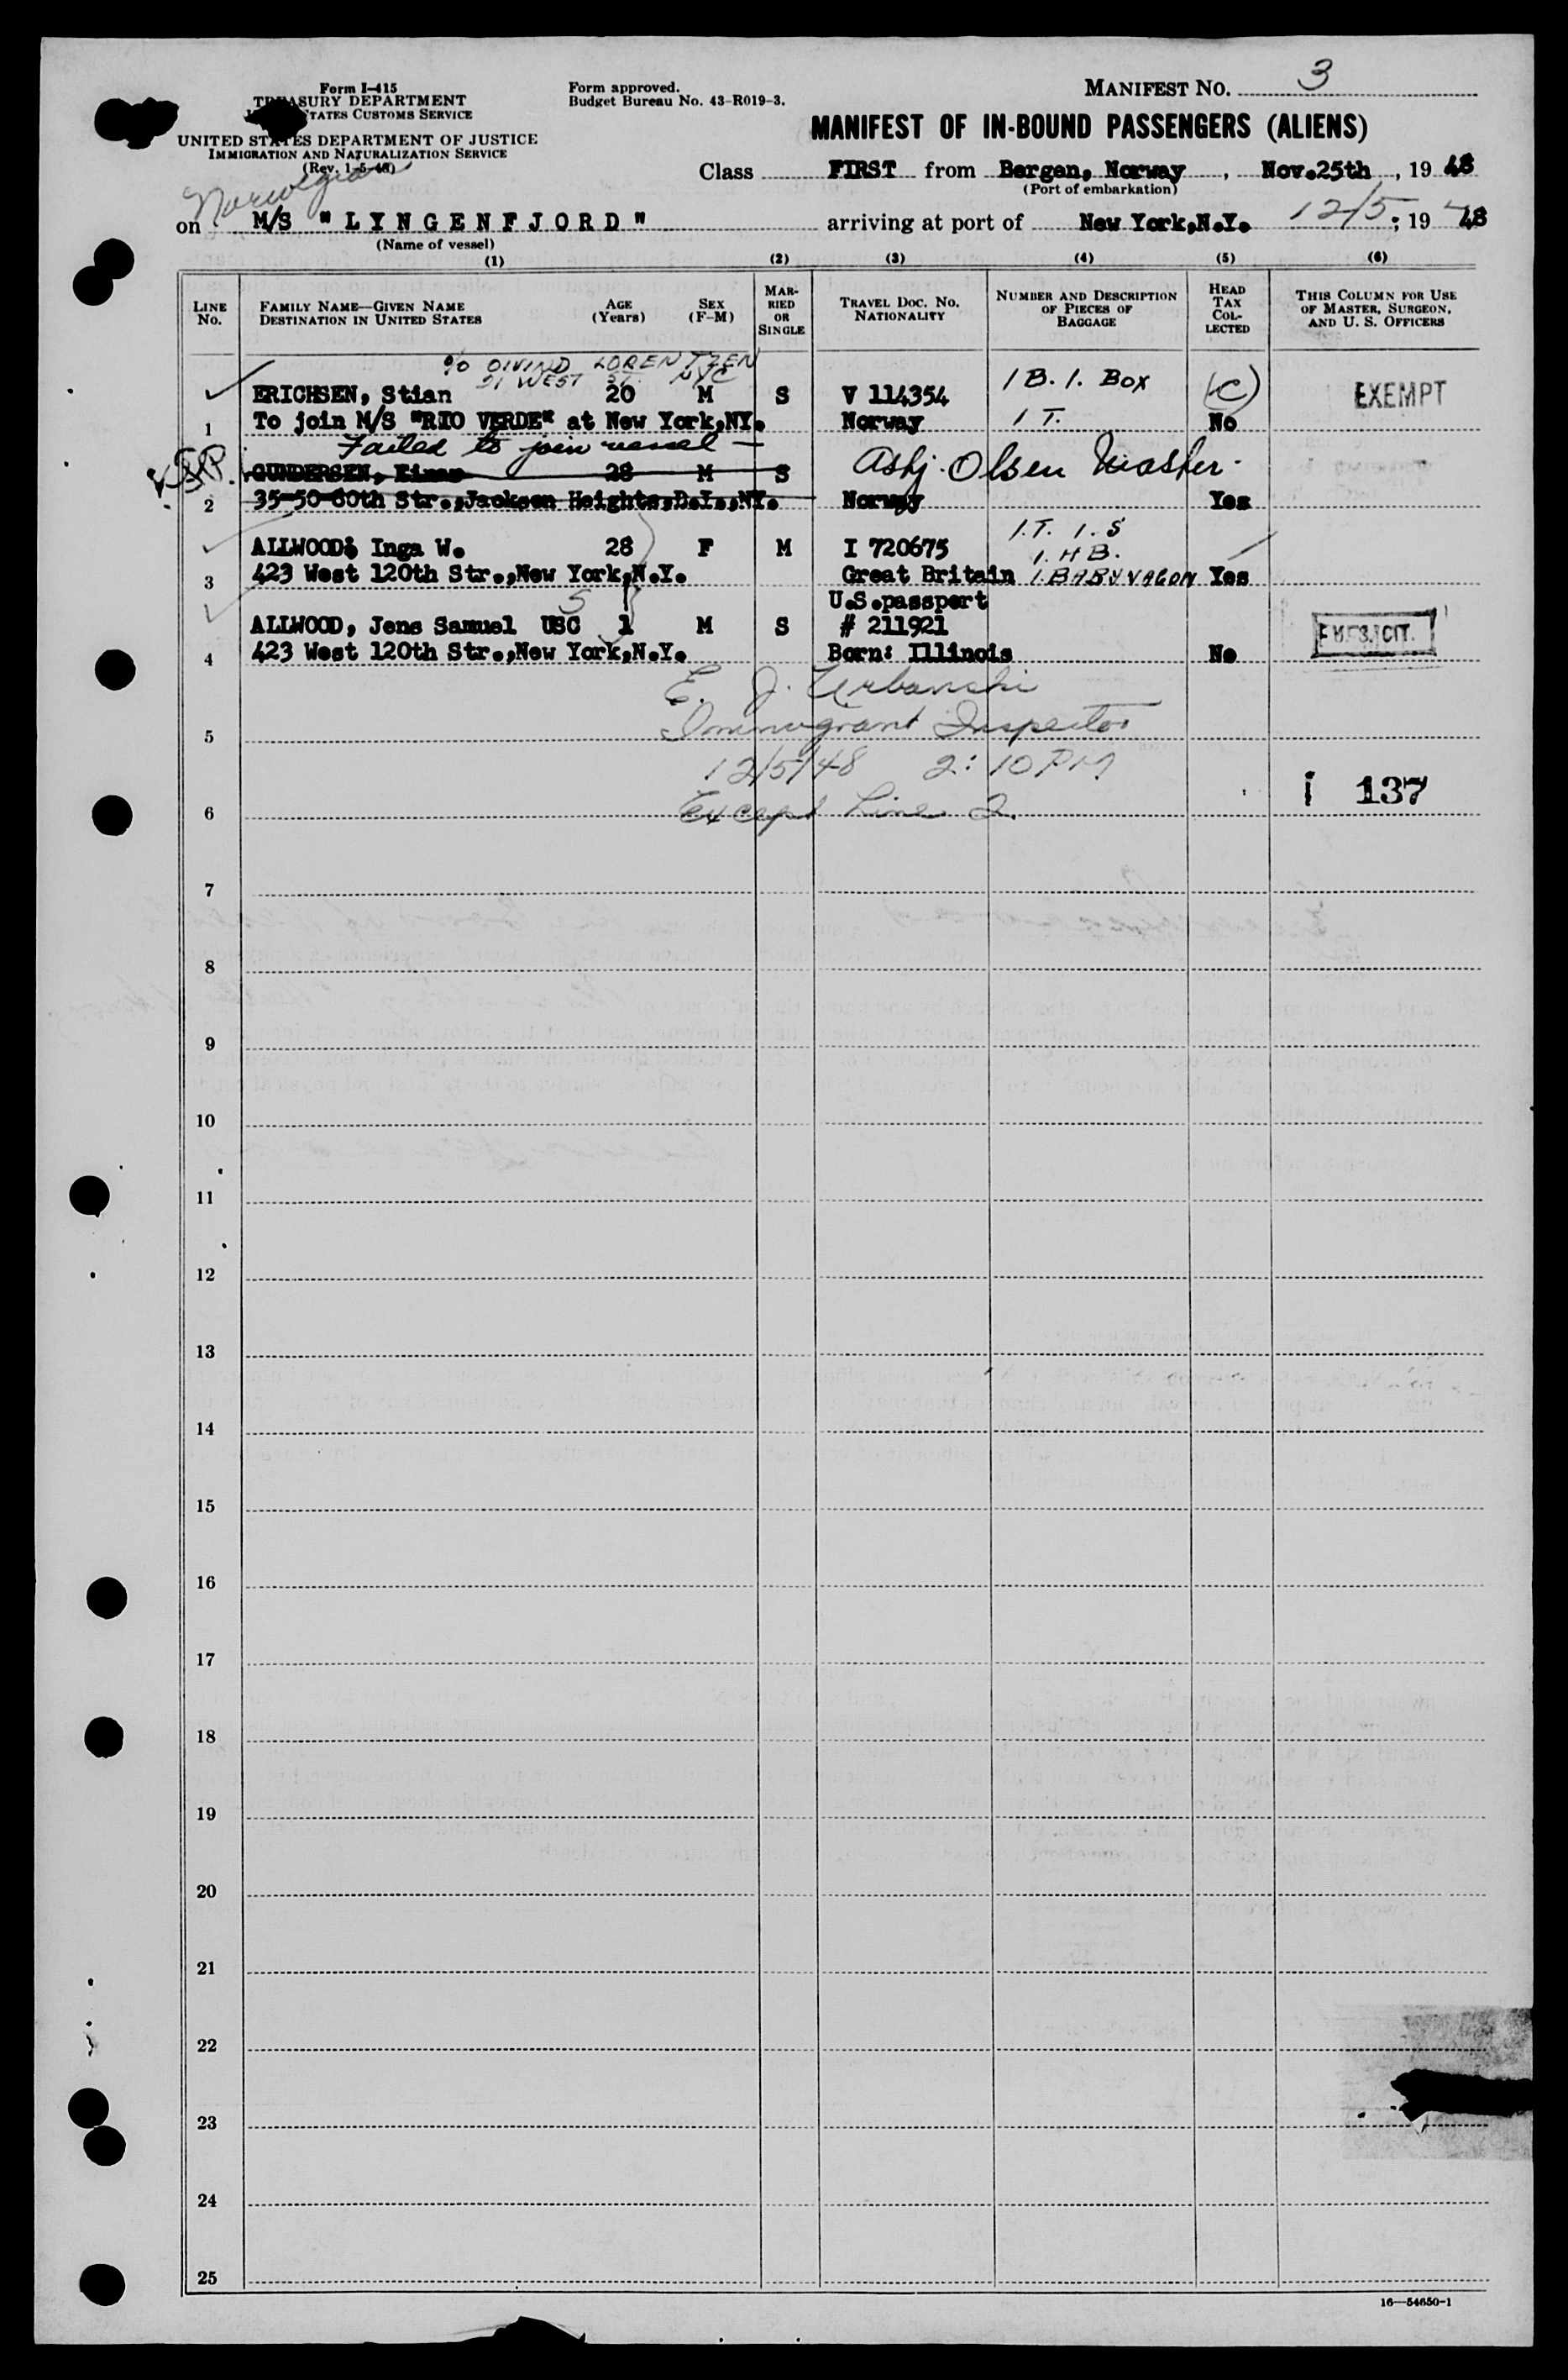 Form I-415
TREASURY DEPARTMENT
STATES CUSTOMS SERVICE
UNITED STATES DEPARTMENT OF JUSTICE
IMMIGRATION AND NATURALIZATION SERVICE
(Rev. 1-5-48)
Form approved.
Budget Bureau No. 43-R019-3.
MANIFEST NO. 3
MANIFEST OF IN-BOUND PASSENGERS (ALIENS)
Class FIRST from Bergen, Norway, Nov.25th, 19 48
(Port of embarkation)
Norwegian
on M/S "LYNGENFJORD" arriving at port of New York,N.Y. 12/5, 19 48
(Name of vessel)
(1) (2) (3) (4) (5) (6)
LINE No.
FAMILY NAME—GIVEN NAME
DESTINATION IN UNITED STATES
AGE (Years)
SEX (F-M)
MARRIED OR SINGLE
TRAVEL DOC. NO.
NATIONALITY
NUMBER AND DESCRIPTION OF PIECES OF BAGGAGE
HEAD TAX COLLECTED
THIS COLUMN FOR USE OF MASTER, SURGEON, AND U. S. OFFICERS
c/o OIVIND LORENTZEN
21 WEST ST. NYC
ERICHSEN, Stian 20 M S V 114354 1 B. 1. BOX (C) EXEMPT
1 To join M/S "RIO VERDE" at New York,NY. Norway 1 T. No
Failed to join vessel —
GUNDERSEN, Einar 28 M S Asbj. Olsen Master.
2 35-50 80th Str.,Jackson Heights,L.I.,NY. Norway Yes
ALLWOOD, Inga W. 28 F M I 720675 1.T. 1.S 1.HB.
3 423 West 120th Str.,New York,N.Y. Great Britain 1.BABYVAGON Yes
U.S.passport
ALLWOOD, Jens Samuel USC 1 M S # 211921
4 423 West 120th Str.,New York,N.Y. Born: Illinois No
E. J. Urbanski
5 Immigrant Inspector
12/5/48 2:10 PM
i 137
6 Except Line 2.
7
8
9
10
11
12
13
14
15
16
17
18
19
20
21
22
23
24
25
16—54650-1